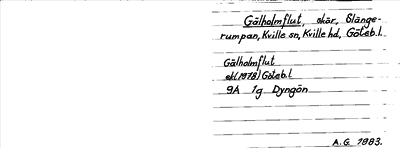 Gälholmflut, skär, Slänge-
rumpan, Kville sn, Kville hd, Göteb.l.
Gälholmflut
ek (1978) Göteb.l
9A 1g Dyngön
A.G. 1983.